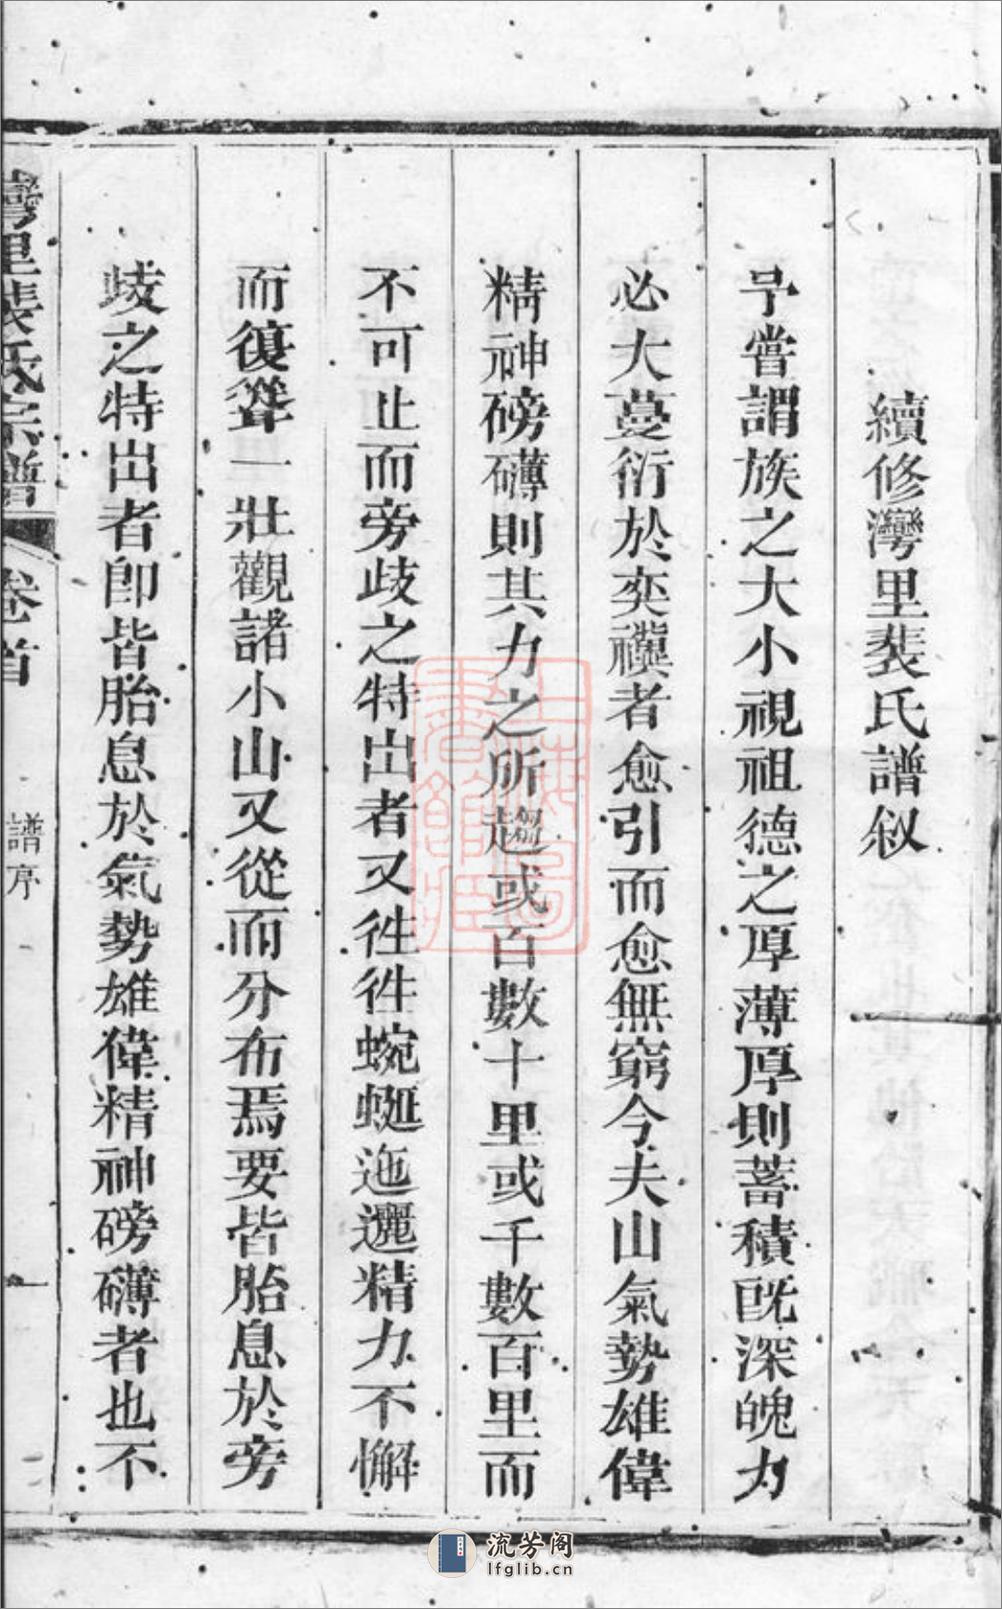 續修灣里裴氏譜叙
予嘗謂族之大小視祖德之厚薄厚則蓄積旣深魄力
必大蔓衍於奕禩者愈引而愈無窮今夫山氣勢雄偉
精神磅礴則其力之所趨或百數十里或千數百里而
不可止而旁歧之特出者又徃徃蜿蜒迤邐精力不懈
而復聳一壯觀諸小山又從而分布焉要皆胎息於旁
歧之特出者卽皆胎息於氣勢雄偉精神磅礴者也不
灣里裴氏宗譜
卷首
譜序
一
上海圖書館藏
流芳阁
lfglib.cn